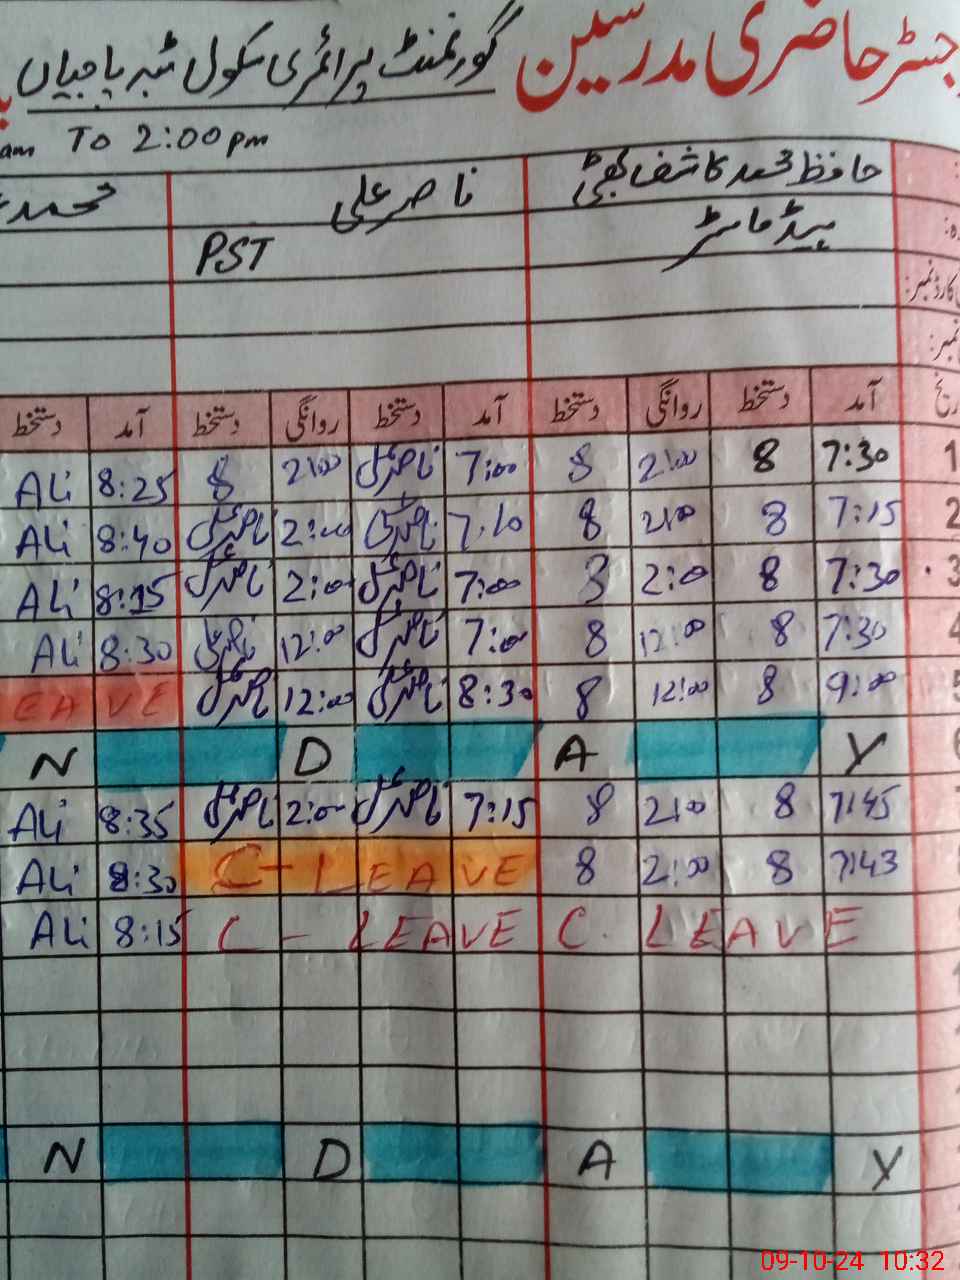 رجسٹر حاضری مدرسین گورنمنٹ پرائمری سکول ٹبہ
am TO 2:00 pm
حافظ محمد کاشف بھٹی ناصر علی محمد
ہیڈ ماسٹر PST
کارڈ نمبر:
نمبر:
آمد دستخط روانگی دستخط آمد دستخط روانگی دستخط آمد دستخط
1 7:30 8 2:00 8 7:00 ناصر علی 2:00 8 8:25 Ali
2 7:15 8 2:00 8 7:10 ناصر علی 2:00 ناصر علی 8:40 Ali
3 7:30 8 2:00 8 7:00 ناصر علی 2:00 ناصر علی 8:15 Ali
4 7:30 8 12:00 8 7:00 ناصر علی 12:00 ناصر علی 8:30 Ali
5 9:00 8 12:00 8 8:30 ناصر علی 12:00 ناصر علی EAVE
N D A Y
7:45 8 2:00 8 7:15 ناصر علی 2:00 ناصر علی 8:35 Ali
7:43 8 2:00 8 C-LEAVE 8:30 Ali
Ali 8:15 C - LEAVE C. LEAVE
N D A Y
09-10-24 10:32